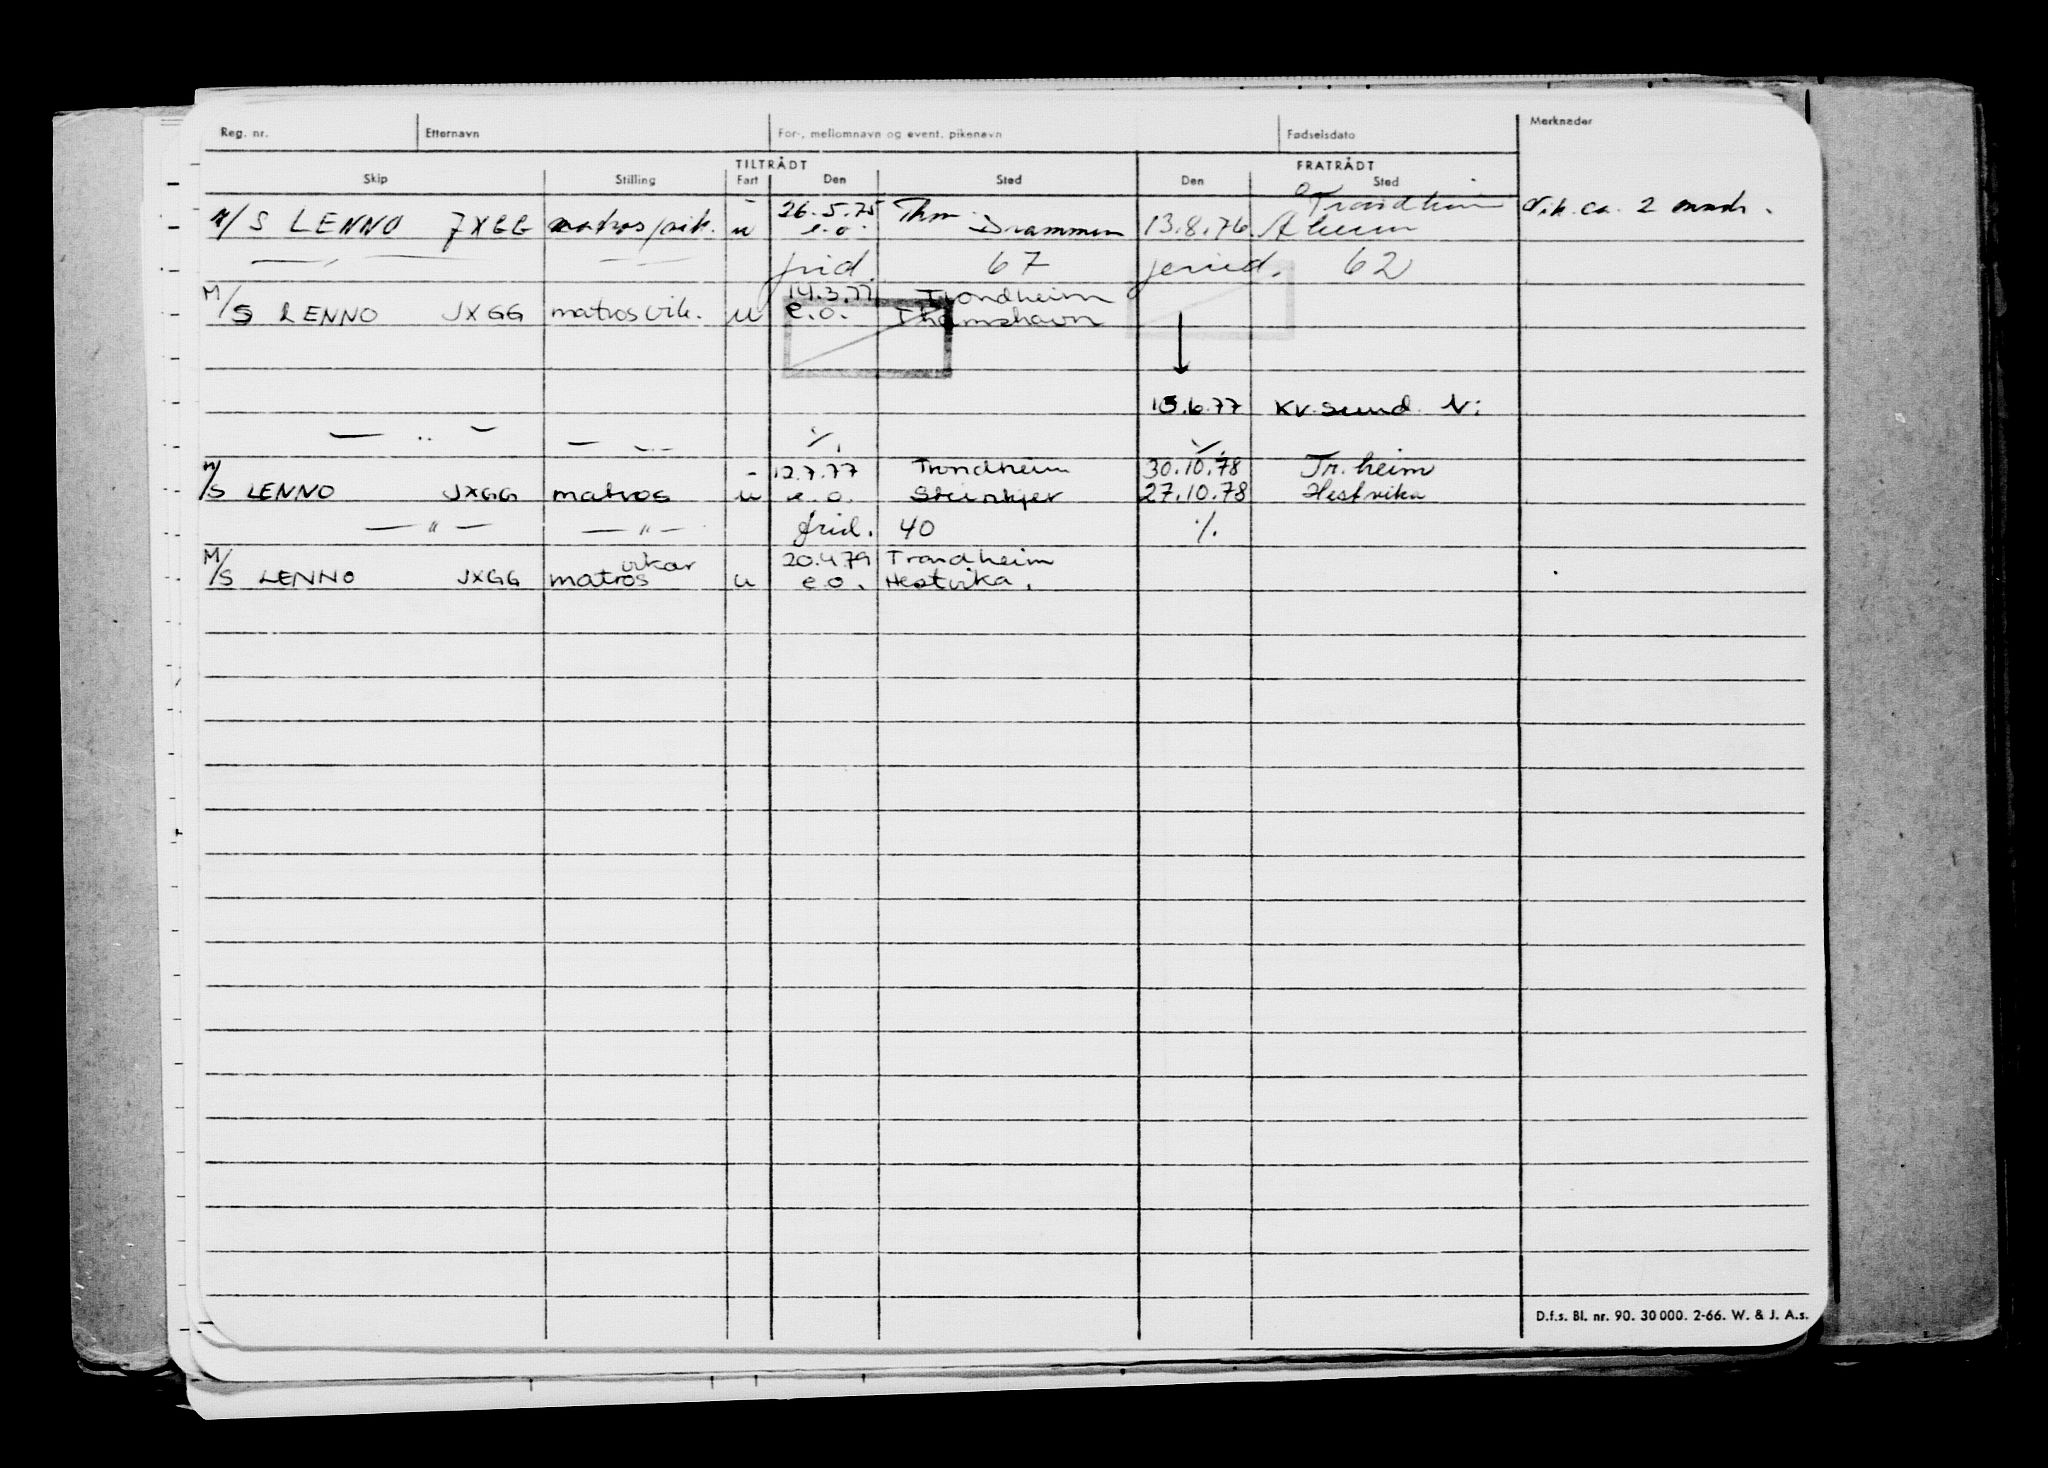 Reg. nr. Etternavn For-, mellomnavn og event. pikenavn Fødselsdato Merknader
TILTRÅDT FRATRÅDT
Skip Stilling Fart Den Sted Den Sted
26.5.75 Thm. Trondheim Vik. ca. 2 mndr.
M/S LENNO JXGG matros/vik. u e.o. Drammen 13.8.76 Åheim
frid. 67 62
14.3.77 Trondheim
M/S LENNO JXGG matros vik. u e.o. Thamshavn
13.6.77 Kr.sund N.
— .. — — .. — ./. ./.
- 12.7.77 Trondheim 30.10.78 Tr.heim
M/S LENNO JXGG matros u e.o. Steinkjer 27.10.78 Hestvika
— " — — " — frid. 40 ./.
vikar 20.4.79 Trondheim
M/S LENNO JXGG matros u e.o. Hestvika.
D.f.s. Bl. nr. 90. 30 000. 2-66. W. & J. A.s.